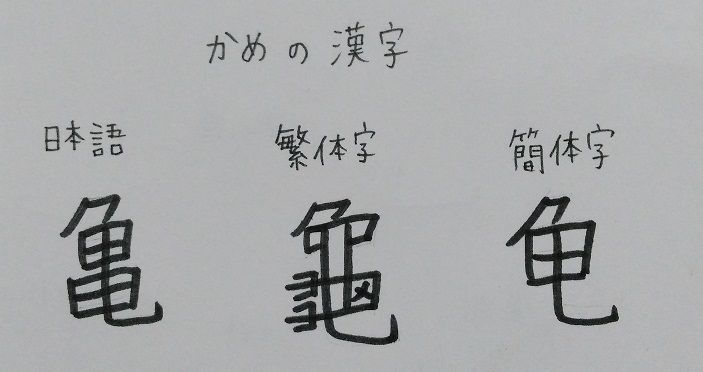 かめの漢字
日本語 繁体字 簡体字
亀 龜 龟